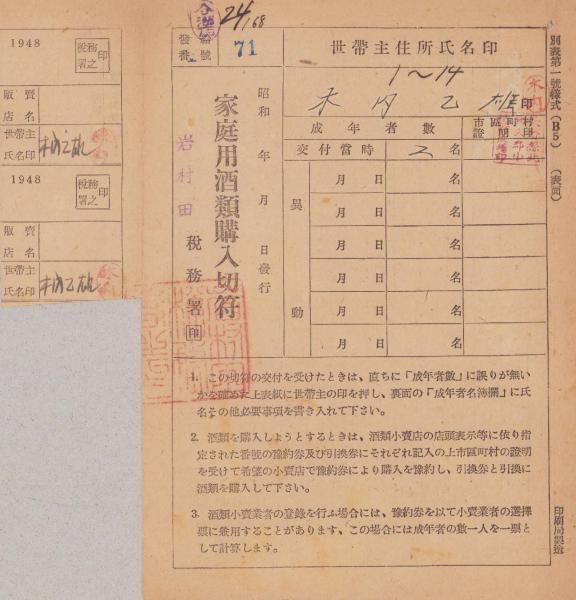 別表第一號樣式（B5）　（表面）
24/68
發行番號
71
世帶主住所氏名印
1〜14
木内乙雄 印
家庭用酒類購入切符
昭和　年　月　日發行
岩村田 稅務署 印
成年者數
市區町村證明印
交付當時 2名
異動
月　日　名
月　日　名
月　日　名
月　日　名
月　日　名
月　日　名
1. この切符の交付を受けたときは、直ちに「成年者數」に誤りが無い
かを確めた上表紙に世帶主の印を押し、裏面の「成年者名簿欄」に氏
名その他必要事項を書き入れて下さい。
2. 酒類を購入しようとするときは、酒類小賣店の店頭表示等に依り指
定された番號の豫約券及び引換券にそれぞれ記入の上市區町村の證明
を受けて希望の小賣店で豫約券により購入を豫約し、引換券と引換に
酒類を購入して下さい。
3. 酒類小賣業者の登錄を行ふ場合には、豫約券を以て小賣業者の選擇
票に兼用することがあります、この場合には成年者の數一人を一票と
して計算します。
印刷局製造
1948
稅務署之印
販賣店名
世帶主氏名印
木内乙雄
1948
稅務署之印
販賣店名
世帶主氏名印
木内乙雄